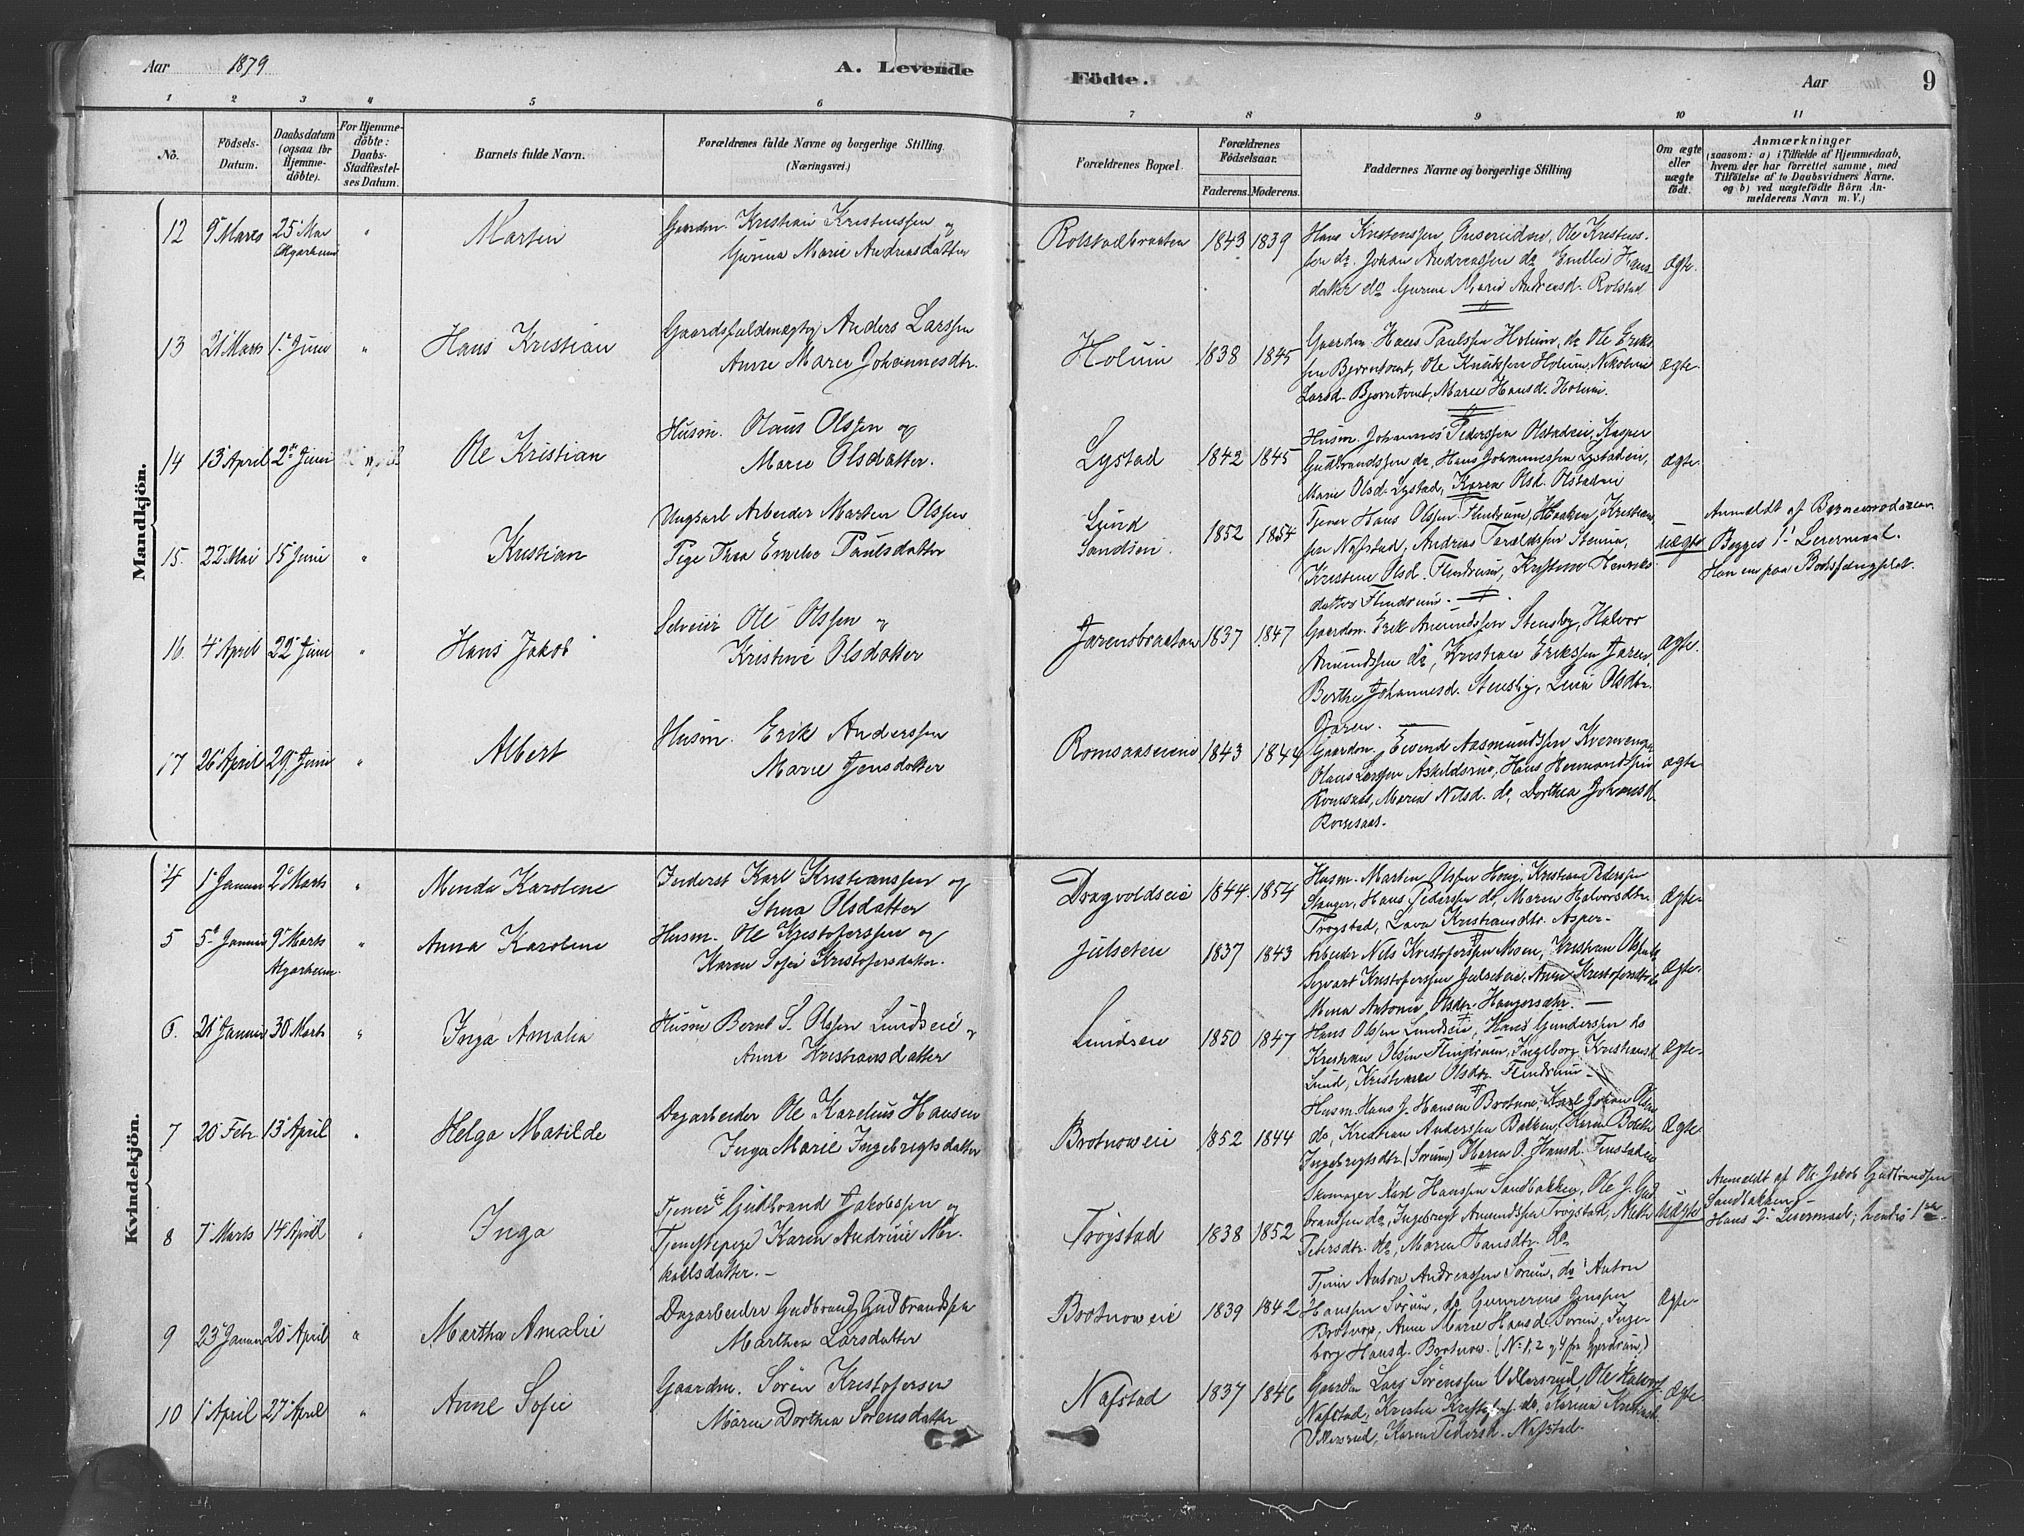 Aar 1879 A. Levende
Födte. Aar 9
1 2 3 4 5 6 7 8 9 10 11
No.
Födsels-
Datum.
Daabsdatum
(ogsaa for
Hjemme-
döbte).
For Hjemme-
döbte:
Daabs-
Stadfæstel-
ses Datum.
Barnets fulde Navn.
Forældrenes fulde Navne og borgerlige Stilling
(Næringsvei.)
Forældrenes Bopæl.
Forældrenes
Födselsaar.
Faderens. Moderens.
Faddernes Navne og borgerlige Stilling
Om ægte
eller
uægte
födt.
Anmærkninger
(saasom: a) i Tilfælde af Hjemmedaab,
hvem der har forrettet samme, med
Tilföielse af to Daabsvidners Navne.
og b) ved uægtefödte Börn An-
melderens Navn m. V.)
Mandkjön.
12 9 Marts 25 Mai " Martin
Gaardm. Kristian Kristenssen og
Gurine Marie Andreasdatter
Rolstadbraaten 1843 1839
Hans Kristenssen Ole Kristens-
sen do Johan Andreassen do Emilie Hans-
datter do Gurine Marie Andreasd. Rolstad
Ægte.
13 21 Marts 1 Juni " Hans Kristian
Anders Larssen
Anne Marie Johannesdtr.
Holum 1838 1845
Gaardm. Hans Paulssen Holum, do Ole Eriks-
sen Ole Holum, Nikoline
Larsd. Marie Hansd. Holum.
Ægte.
14 13 April 2 Juni Ole Kristian
Husm. Olaus Olssen og
Marie Olsdatter.
Lystad 1842 1845
Husm. Johannes Pederssen Olstadeie, Kasper
Gudbrandssen do, Hans Johannessen Lystadeie,
Marie Olsd. Lystad, Karen Olsd. Olstadeie
Ægte.
15. 22 Mai 15 Juni " Kristian
Ungkarl Arbeider Martin Olssen
Pige Thea Emilie Paulsdatter
Lund
1852 1854
Tjener Hans Olssen Flindrum, Haaken Kristians-
sen Nafstad, Andreas
Kristine Olsd. Flindrum, Henriks-
datter Flindrum.
uægte
Anmeldt af Barnemoderen
Begges 1 Leiermaal.
Han er paa Bodsfængslet.
16. 4 April 22 Juni " Hans Jakob
Selveier Ole Olssen og
Kristine Olsdatter
Jarensbraaten 1837 1847
Gaardm. Erik Amundssen Stensby, Halvor
Amundssen do, Kristian Erikssen Jaren,
Berthe Johannesd. Stensby, Olsdtr.
Jaren.
Ægte.
17 26 April 29 Juni " Albert
Husm. Erik Anderssen
Marie Jensdatter
Romsaaseie 1843 1844
Gaardm. Eivend Aasmundssen
Olaus Larssen Hans
Romsaas, Maria Nilsd. do, Dorthea Johansd.
Romsaas.
Ægte
Kvindekjön.
4 1 Januar 2 Marts " Minda Karoline
Inderst Karl Kristianssen og
Stina Olsdatter
Dragvoldseie 1844. 1854
Husm. Martin Olssen Kristian Pederssen
Stanger, Hans Pederssen do, Maren Halvorsdtr.
Trogstad, Kristiansdtr. Asper.
Ægte
5 5 Januar 9 Marts " Anna Karoline
Algarheim.
Husm. Ole Kristofersen og
Karen Sofie Kristofersdatter.
Julseteie 1837 1843
Arbeider Nils Kristofersen Moen, Kristian
Sigvart Kristofersen Julseteie, Anne Kristofersdtr do
Mina Antonie Olsdtr.
Ægte
6. 21 Januar 30 Marts " Inga Amalia
Husm Bernt S. Olssen Lundseie og
Anne Kristiansdatter
Lundseie 1850 1847
Hans Olssen Lundseie, Hans Gunderssen do
Kristian Olsen Flindrum, Ingeborg Kristiansd.
Lund, Kristiane Olsdtr. Flindrum
Ægte
7 20 Febr 13 April " Helga Matilde
Dagarbeider Ole Karelius Hansen
Inga Marie Ingebrigtsdatter
Brotnoweie 1852 1844
Husm. Hans J. Hansen Brotnow, Karl Johan Olsen
do, Kristian Anderssen Bakken, Karen
Ingebrigtsdtr. (Sørum) Maren O. Hansd. Finstadeie
Ægte
8 7 Marts 14 April " Inga
Tjener Gudbrand Jakobssen og
Tjenestepige Karen Andrine Mi-
kaelsdatter.
Trøgstad 1838 1852
Skomager Karl Hanssen Sandbakken, Ole J. Gud-
brandsen do, Ingebregt Amundssen Trøgstad, Mathe
Petersdtr. do, Maren Hansdtr. do
Uægte
Anmeldt af Ole Jakob Gudbrandsen
Sandbakken.
Hans 2 Leiermaal; hendes 1ste.
9 23 Januar 20 April " Martha Amalie
Dagarbeider Gudbrand Gudbrandssen
Marthea Larsdatter
Brotnoweie 1839 1842
Tjener Anton Andreassen Sørum, do Anton
Hanssen Sørum, do Gunnerius Jenssen
Brotnow, Anne Marie Hansd. Sørum, Inge-
borg Hansd. Brotnow. (No 1, 2 og 4 fra Gjerdrum)
Ægte
10 1 April 27 April " Anne Sofie
Gaardm. Sören Kristofersen
Maren Dorthea Sörensdatter
Nafstad 1837 1846
Gaardm Lars Sørenssen Ullersrud, Ole
Nafstad, Kristen do, Karina
Ullersrud, Karen Pedersd. Nafstad.
Ægte